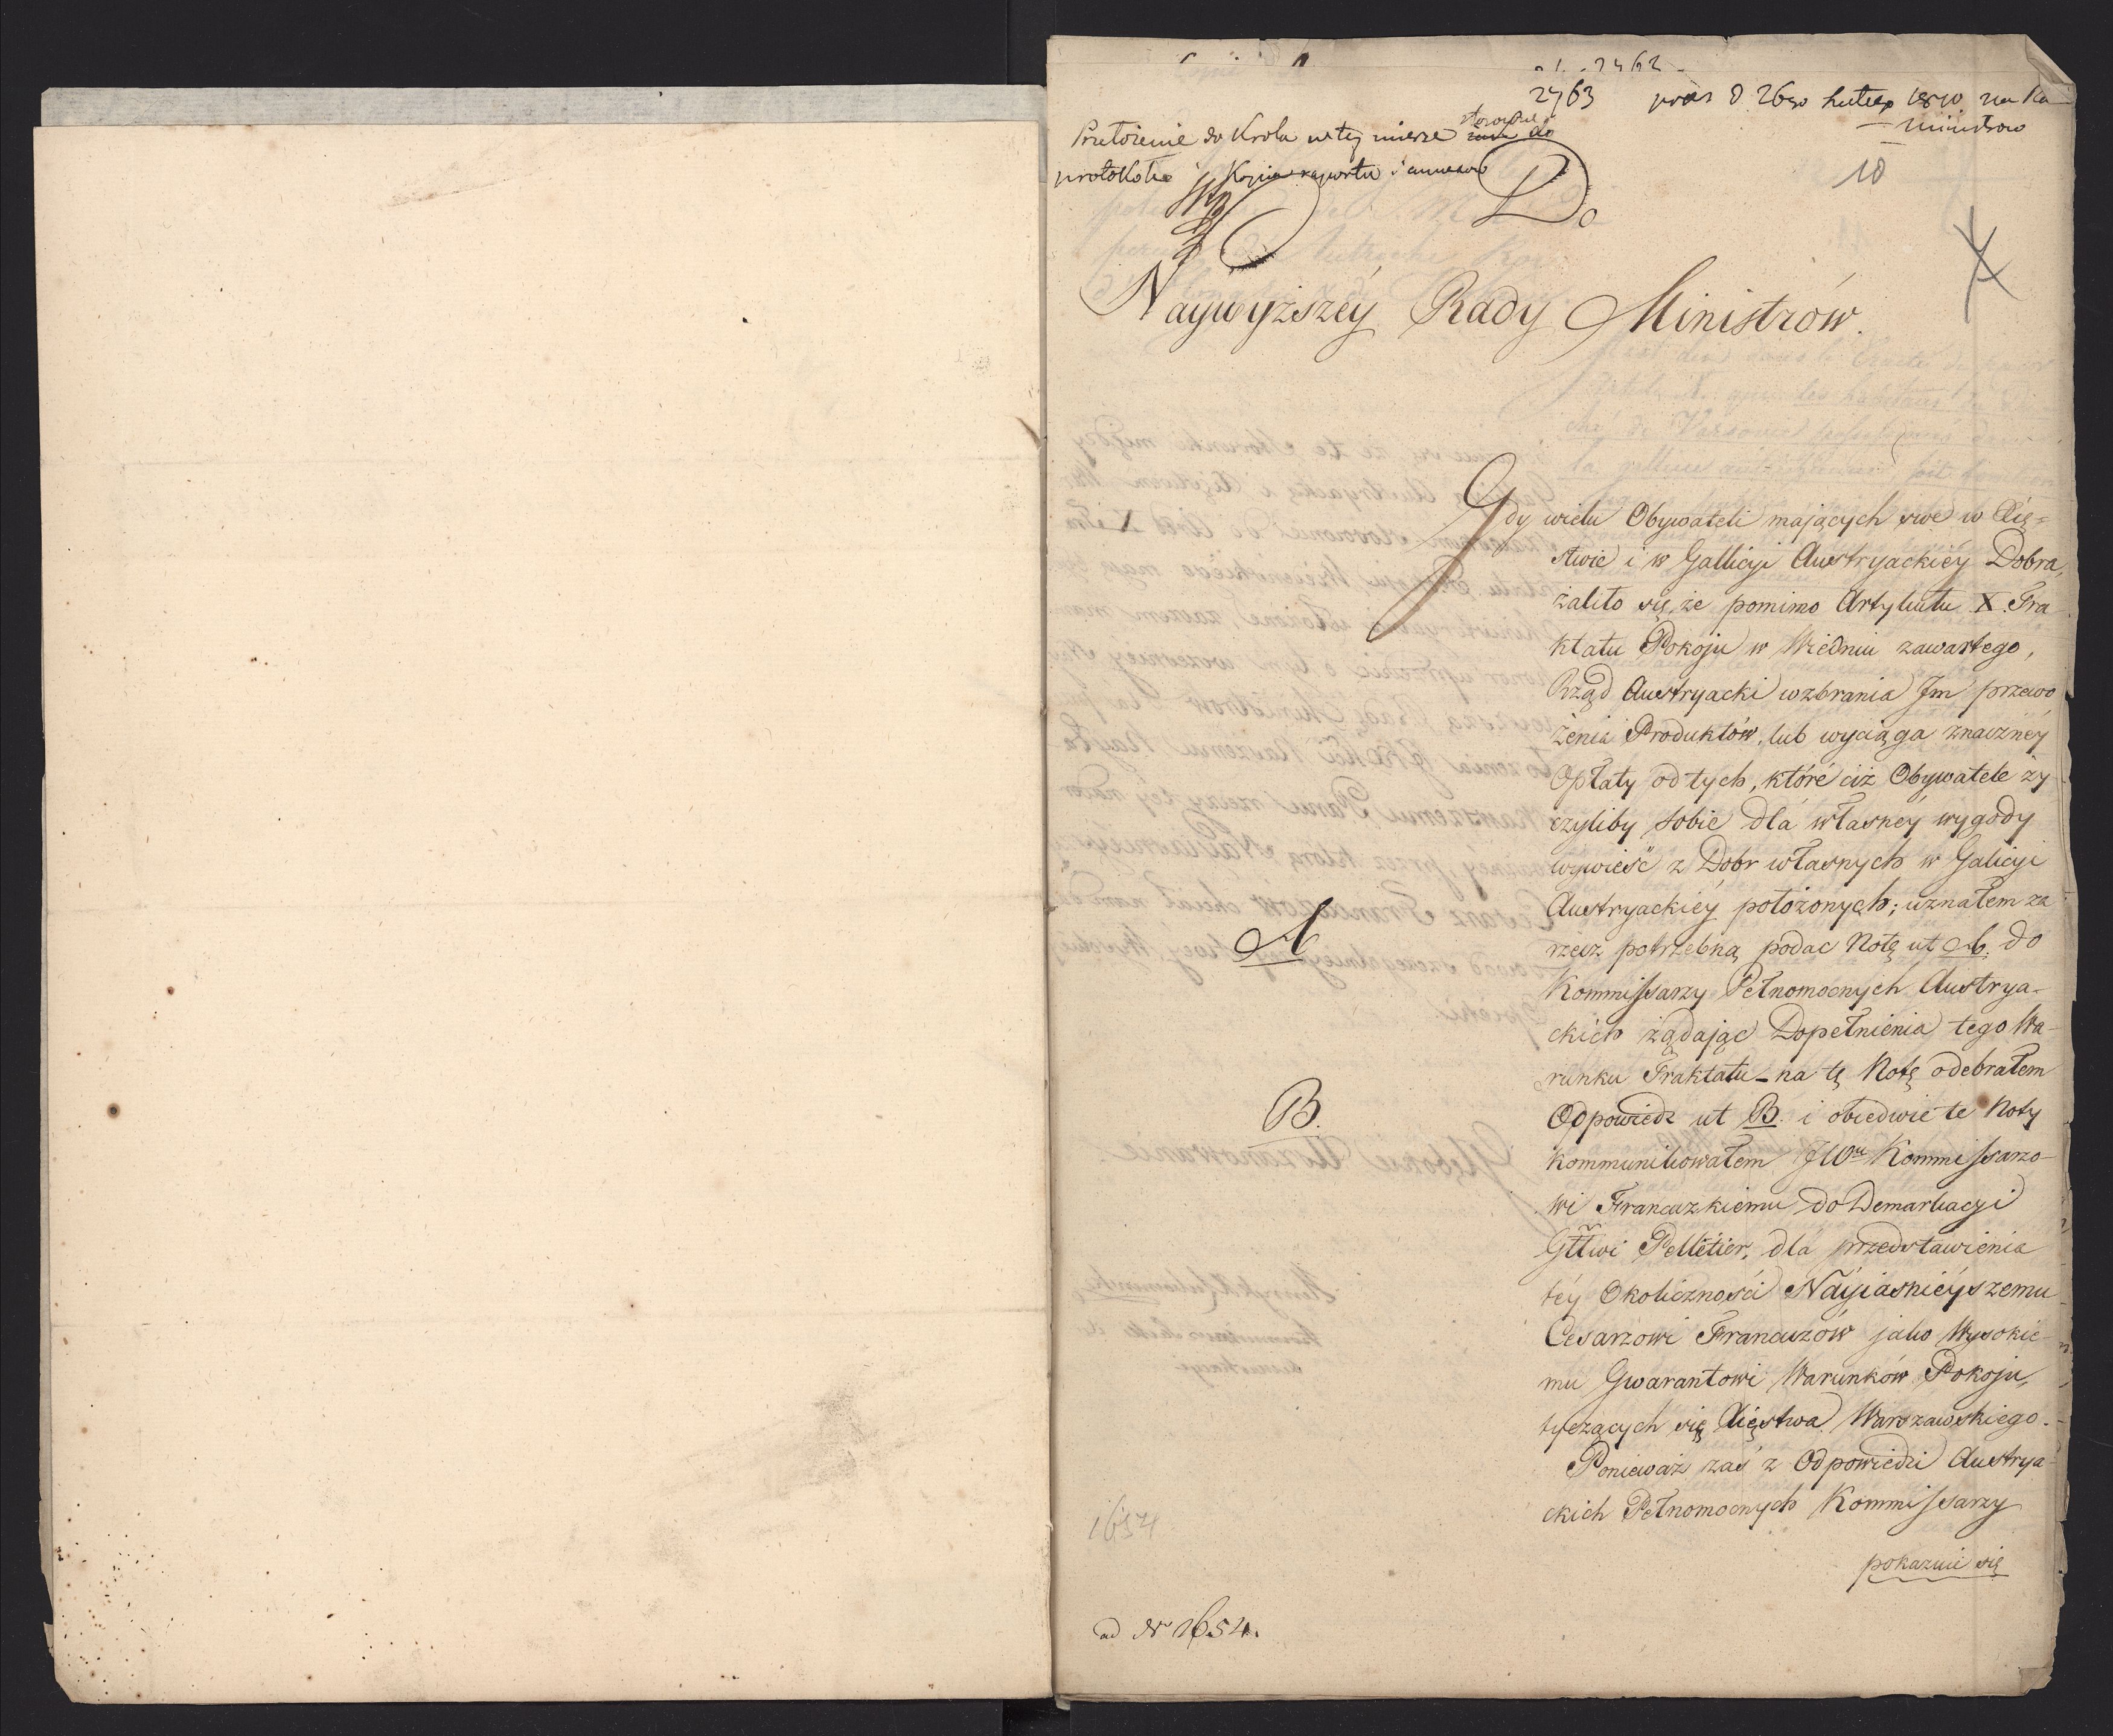 2763 pras d 26go lutego 1810 na Ra
ministrow
Przełożenie do Krola w tey mierze stosownie do
protokołu i Kopia raportu i annexow
10
Do
Naywyższéy Rady Ministrów.
Gdy wielu Obywateli mających swe w Xię=
stwie i w Gallicyi Austryackiéy Dobra,
żaliło się, że pomimo Artykułu X. Tra
ktatu Pokoju w Wiedniu zawartego,
Rząd Austryacki wzbrania Im przewo
żenia Produktów, lub wyciąga znacznéy
Opłaty od tych, któré ciż Obywatele ży
czyliby sobie dla własnéy wygody
wywieść z Dobr własnych w Galicyi
Austryackiéy położonych; uznałem za
rzecz potrzebną podac Notę ut A. do
A
Kommissarzy Pełnomocnych Austrya-
ckich żądając Dopełnienia tego Wa-
runku Traktatu - na tę Notę odebrałem
Odpowiedz ut B. i obiedwie te Noty
B.
kommunikowałem JWu Kommissarzo-
wi Francuzkiemu do Demarkacyi
Gttwi Pelletier, dla przedstawienia
téy Okoliczności Nayiaśniéyszemu
Cesarzowi Francuzów jako Wysokie-
mu Gwarantowi Warunków Pokoju,
tyczących się Xięstwa Warszawskiego.
Ponieważ zaś z Odpowiedzi Austrya-
ckich Pełnomocnych Kommissarzy
pokazuie się
1654
ad Nr 1654.